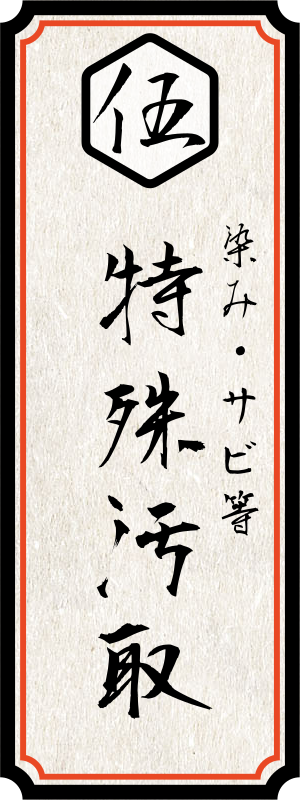 伍
染み・サビ等
特殊汚取